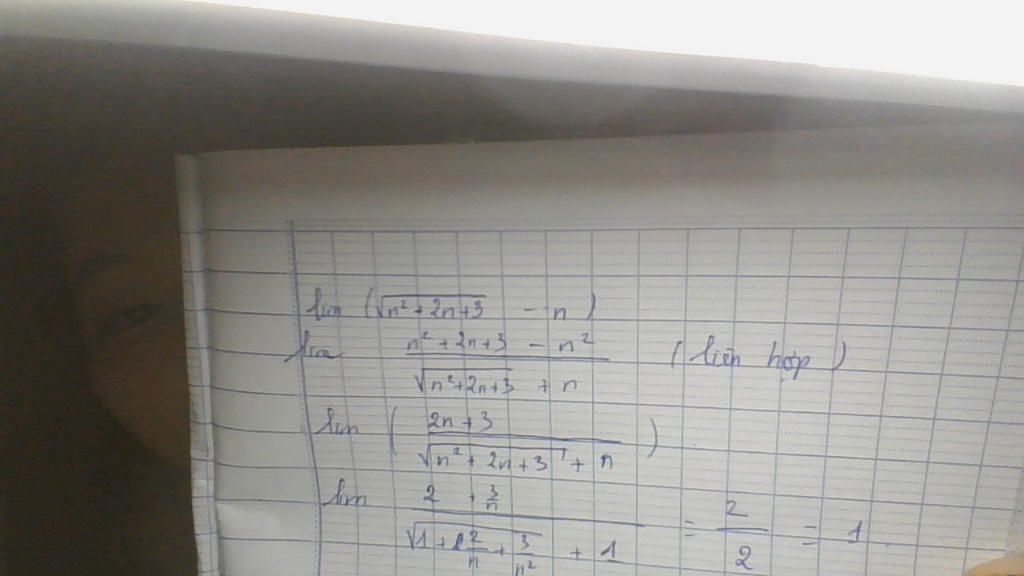 lim (√(n² + 2n + 3) - n)
lim (n² + 2n + 3 - n²) / (√(n² + 2n + 3) + n) (liên hợp)
lim ( (2n + 3) / (√(n² + 2n + 3) + n) )
lim (2 + 3/n) / (√(1 + 2/n + 3/n²) + 1) = 2/2 = 1